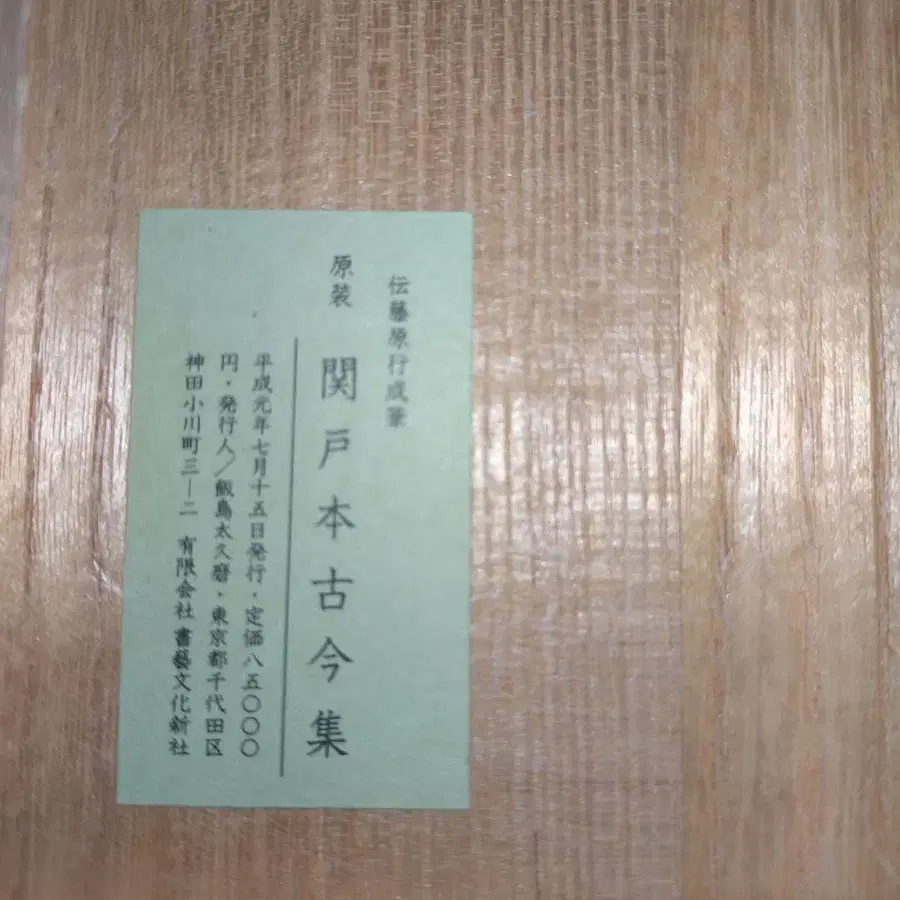 伝藤原行成筆
原装 関戸本古今集
平成元年七月十五日発行・定価八五〇〇〇
円・発行人/飯島太久磨・東京都千代田区
神田小川町三―二 有限会社 書藝文化新社